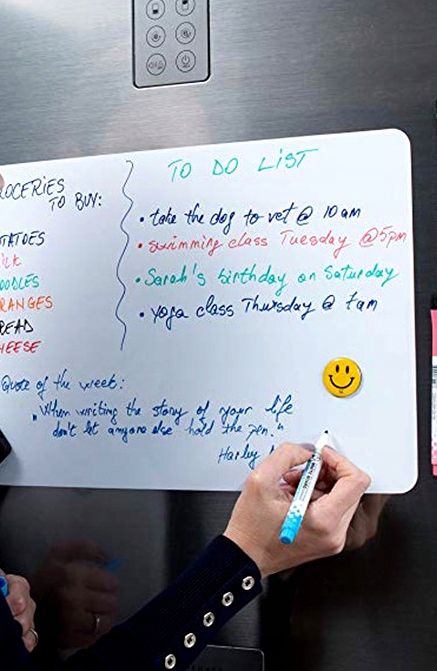 ROCERIES
TO BUY:
OTATOES
ILK
OODLES
RANGES
READ
HEESE
TO DO LIST
• take the dog to vet @ 10am
• swimming class Tuesday @5pm
• Sarah's birthday on Saturday
• yoga class Thursday @ 7am
Quote of the week:
"When writing the story of your life
don't let anyone else hold the pen."
Harley